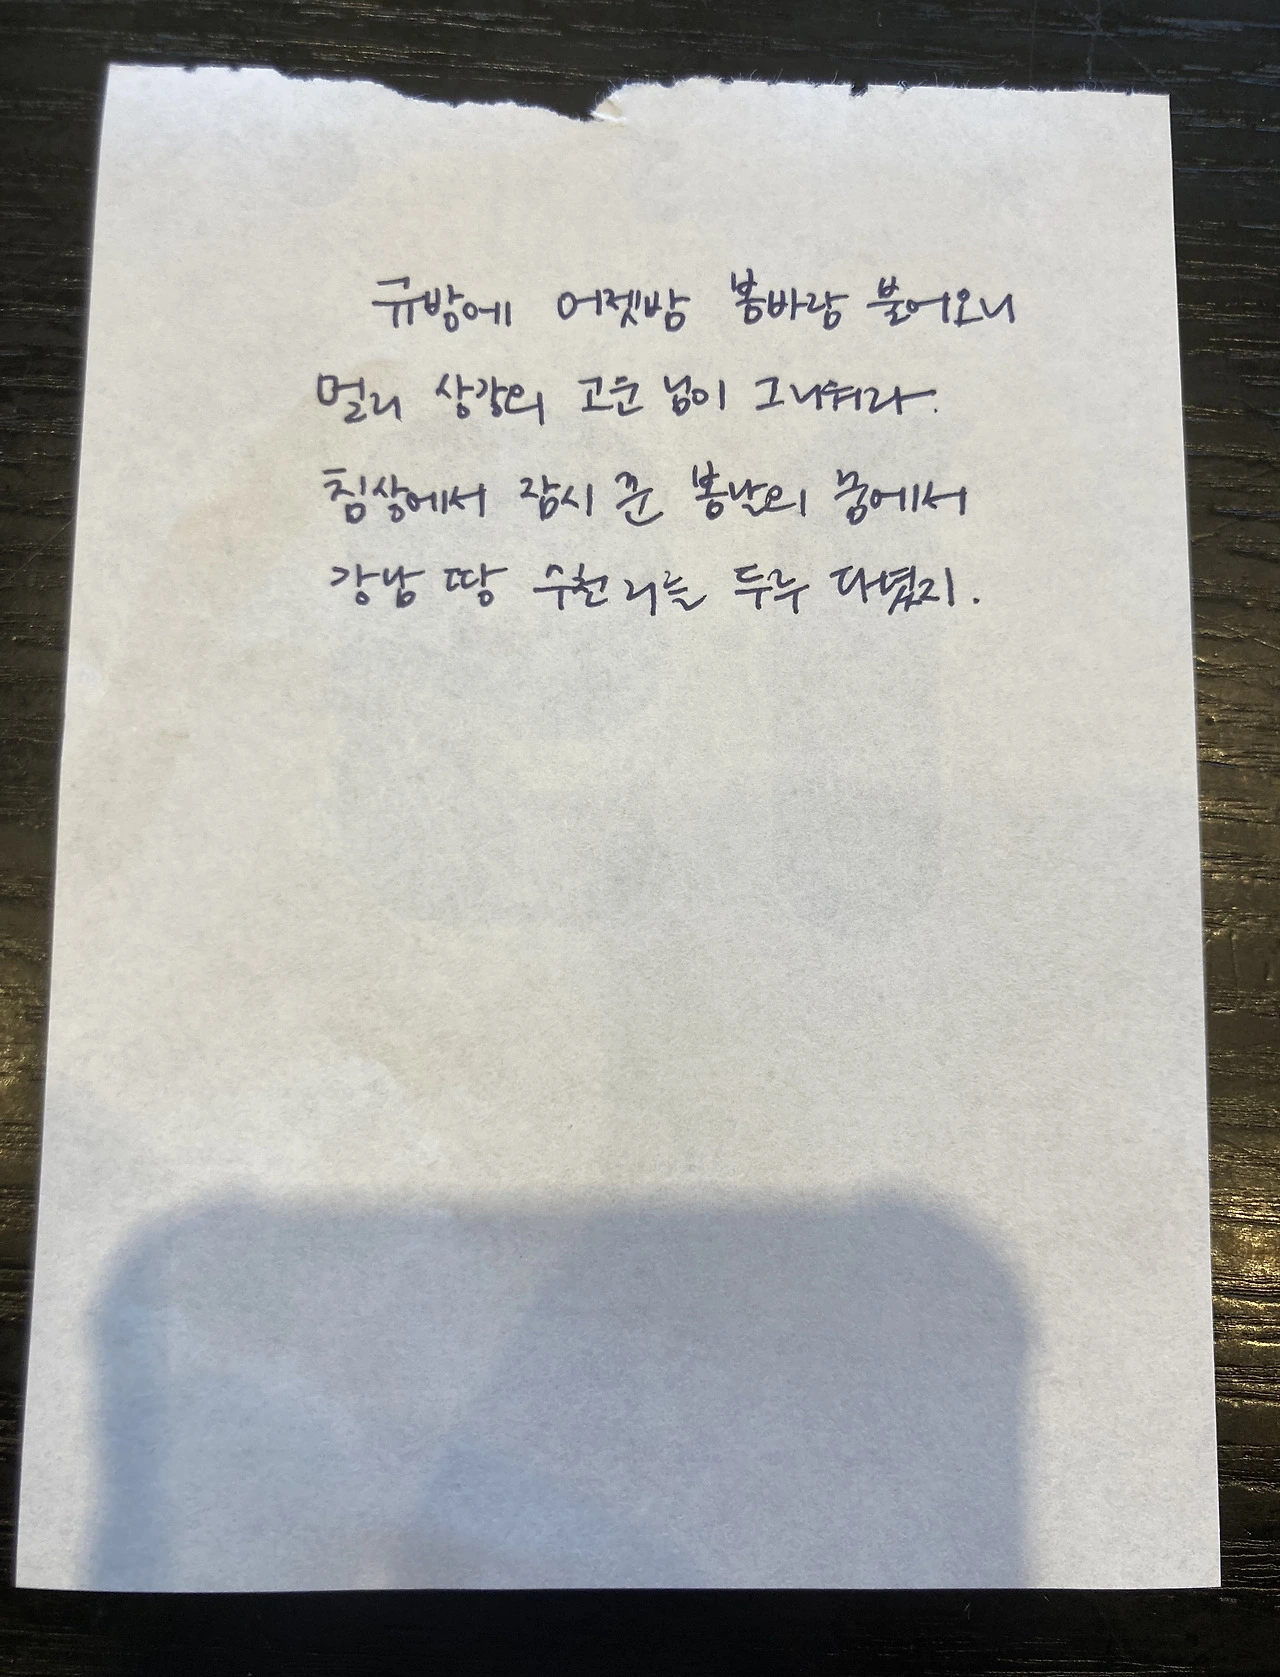 규방에 어젯밤 봄바람 불어오니
멀리 상강의 고운 님이 그리워라.
침상에서 잠시 꾼 봄날의 꿈에서
강남 땅 수천 리를 두루 다녔지.